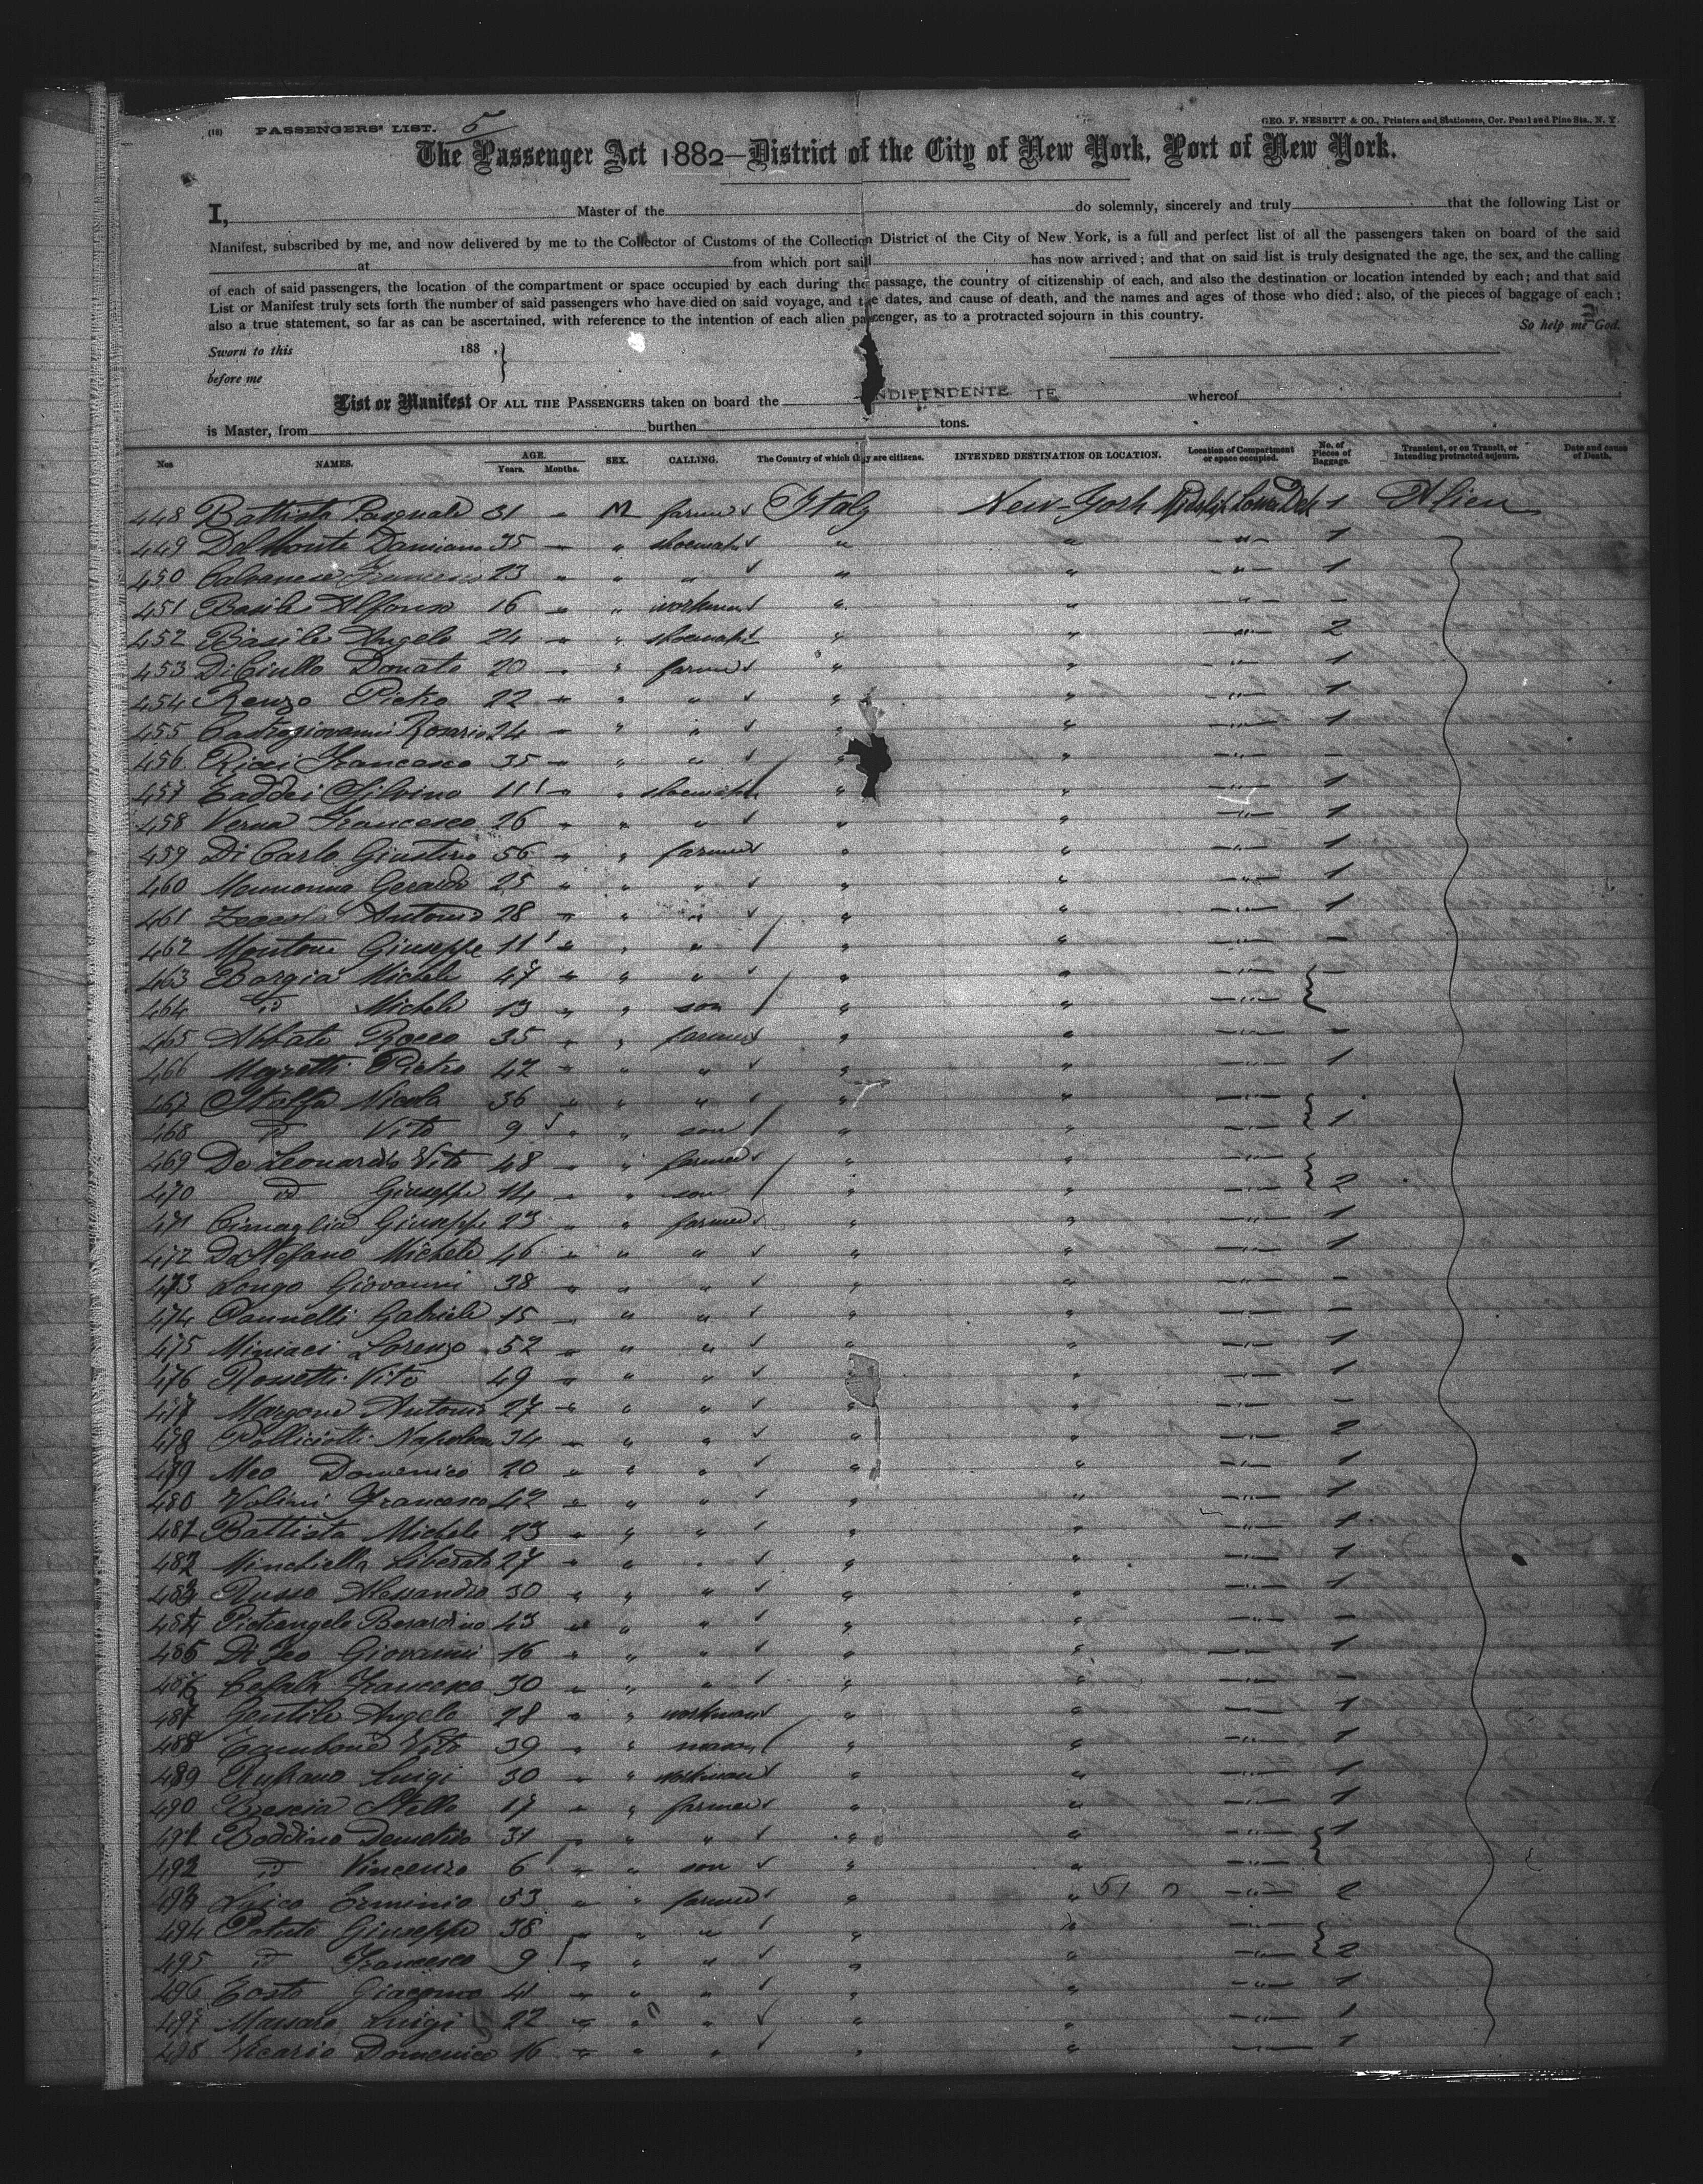 (16) PASSENGERS' LIST. 5
GEO. F. NESBITT & CO., Printers and Stationers, Cor. Pearl and Pine Sts., N. Y.
The Passenger Act 1882—District of the City of New York, Port of New York.
I, Master of the do solemnly, sincerely and truly that the following List or
Manifest, subscribed by me, and now delivered by me to the Collector of Customs of the Collection District of the City of New York, is a full and perfect list of all the passengers taken on board of the said
at from which port sail has now arrived; and that on said list is truly designated the age, the sex, and the calling
of each of said passengers, the location of the compartment or space occupied by each during the passage, the country of citizenship of each, and also the destination or location intended by each; and that said
List or Manifest truly sets forth the number of said passengers who have died on said voyage, and the dates, and cause of death, and the names and ages of those who died; also, of the pieces of baggage of each;
also a true statement, so far as can be ascertained, with reference to the intention of each alien passenger, as to a protracted sojourn in this country. So help me God.
Sworn to this 188 ,
before me
List or Manifest OF ALL THE PASSENGERS taken on board the NDIPENDENTE TE whereof
is Master, from burthen tons.
Nos NAMES. AGE. Years. Months. SEX. CALLING. The Country of which they are citizens. INTENDED DESTINATION OR LOCATION. Location of Compartment or space occupied. No. of Pieces of Baggage. Transient, or on Transit, or Intending protracted sojourn. Date and cause of Death.
448 Battista Pasquale 31 " M farmer Italy New-York Midship Lower Deck 1 Alien
449 Dal Monte Damiano 35 " " shoemaker " " " 1
450 Calvanese Francesco 23 " " " " " " 1
451 Basile Alfonso 16 " " workman " " " -
452 Basile Angelo 24 " " shoemaker " " " 2
453 DiCiullo Donato 20 " " farmer " " " 1
454 Renzo Pietro 22 " " " " " " 1
455 Castrogiovanni Rosario 24 " " " " " " 1
456 Ricci Francesco 35 " " " " " " -
457 Taddei Silvino 11 " " shoemaker " " " 1
458 Verna Francesco 26 " " " " " " 1
459 Di Carlo Giustino 56 " " farmer " " " 1
460 Gerardo 25 " " " " " " 1
461 Antonio 28 " " " " " " 1
462 Montone Giuseppe 11 " " " " " " -
463 Borgia Michele 47 " " " " " " -
464 id Michele 13 " " son " " "
465 Abbate Rocco 35 " " farmer " " " -
466 Pietro 42 " " " " " " 1
467 Stalfa Nicola 36 " " " " " "
468 id Vito 9 " " son " " " 1
469 De Leonardis Vito 48 " " farmer " " "
470 id Giuseppe 14 " " son " " " 2
471 Cimaglia Giuseppe 23 " " farmer " " " 1
472 DiStefano Michele 46 " " " " " " 1
473 Longo Giovanni 38 " " " " " " -
474 Iannelli Gabriele 15 " " " " " " -
475 Miniaci Lorenzo 52 " " " " " " 1
476 Rossetti Vito 49 " " " " " " 1
477 Morgone Antonio 27 " " " " " " -
478 Polliciotti Napoleon 34 " " " " " " 2
479 Meo Domenico 20 " " " " " " 1
480 Volini Francesco 42 " " " " " " 1
481 Battista Michele 23 " " " " " " 1
482 Minchiella Liberato 27 " " " " " " 1
483 Russo Alessandro 30 " " " " " " 1
484 Pietrangelo Berardino 43 " " " " " " -
485 Di Feo Giovanni 16 " " " " " " 1
486 Cefala Francesco 30 " " " " " " -
487 Gentile Angelo 28 " " workman " " " 1
488 Tambone Vito 39 " " mason " " " 1
489 Rufrano Luigi 30 " " workman " " " 1
490 Brescia Stello 17 " " farmer " " " 1
491 Boddino Demetrio 31 " " " " " " 1
492 id Vincenzo 6 " " son " " "
493 Luico Erminio 53 " " farmer " " 51 " 2
494 Potuto Giuseppe 38 " " " " " "
495 id Francesco 9 " " " " " " 2
496 Tosto Giacomo 41 " " " " " " 1
497 Massaro Luigi 22 " " " " " " 1
498 Vicario Domenico 16 " " " " " " 1